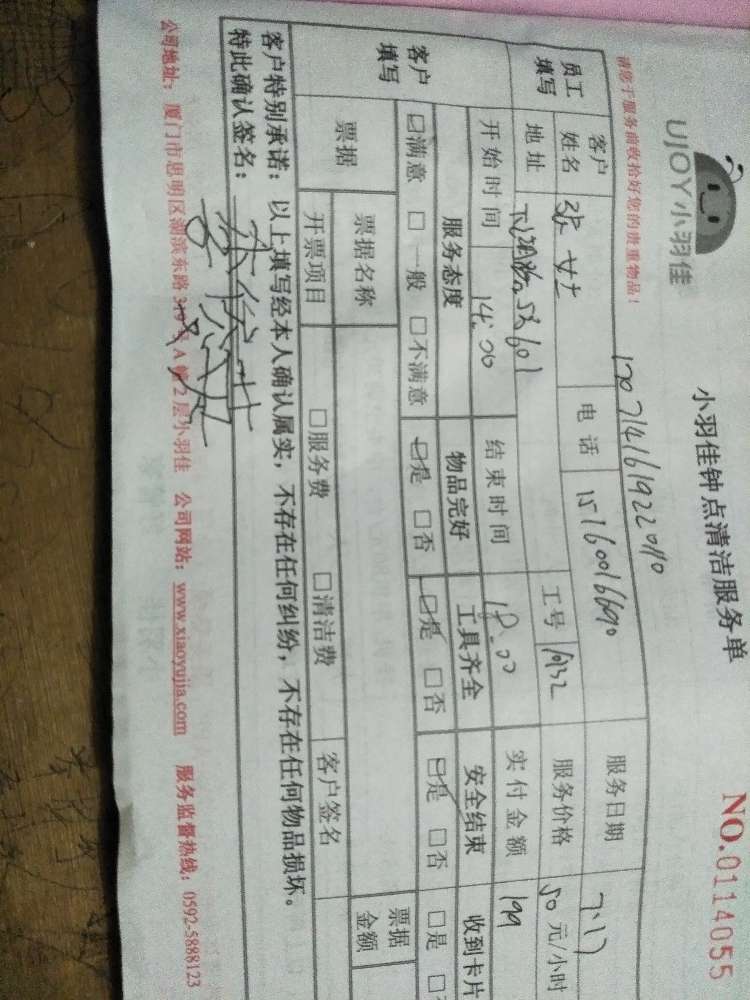 UJOY小羽佳
小羽佳钟点清洁服务单
NO.0114055
请您于服务前收拾好您的贵重物品！
员工填写
客户姓名 女士 电话 15160016690 服务日期 7.17
地址 工号 服务价格 50 元/小时
开始时间 14:00 结束时间 18:00 实付金额 199
客户填写
服务态度 物品完好 工具齐全 安全结束 收到卡片
☑满意 □一般 □不满意 ☑是 □否 ☑是 □否 ☑是 □否 □是
票据 票据名称 票据金额
开票项目 □服务费 □清洁费 客户签名
客户特别承诺：以上填写经本人确认属实，不存在任何纠纷，不存在任何物品损坏。
特此确认签名：
公司地址：厦门市思明区湖滨东路319号A幢2层小羽佳 公司网站：www.xiaoyujia.com 服务监督热线：0592-5888123